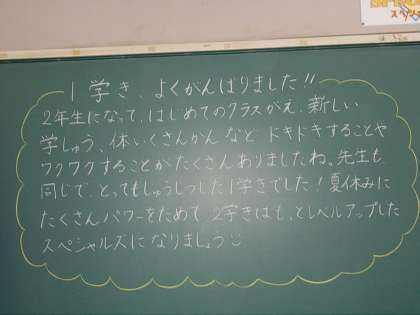 スペシャ
1学き、よくがんばりました!!
2年生になって、はじめてのクラスがえ、新しい
学しゅう、体いくさんかんなど ドキドキすることや
ワクワクすることがたくさんありましたね。先生も
同じで、とってもじゅうじつした1学きでした!夏休みに
たくさんパワーをためて 2学きは もっとレベルアップした
スペシャルズになりましょう